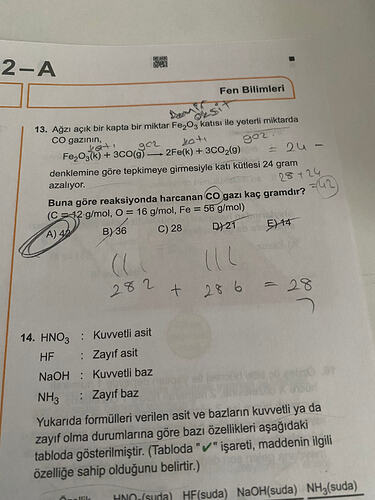 2-A
Fen Bilimleri
Demir
oksit
13. Ağzı açık bir kapta bir miktar Fe₂O₃ katısı ile yeterli miktarda
CO gazının,
katı gaz katı gaz
Fe₂O₃(k) + 3CO(g) ⟶ 2Fe(k) + 3CO₂(g) = 24 -
denklemine göre tepkimeye girmesiyle katı kütlesi 24 gram
azalıyor.
28 + 24
= 42
Buna göre reaksiyonda harcanan CO gazı kaç gramdır?
(C = 12 g/mol, O = 16 g/mol, Fe = 56 g/mol)
A) 42 B) 36 C) 28 D) 21 E) 14
282 + 286 = 28
14. HNO₃ : Kuvvetli asit
HF : Zayıf asit
NaOH : Kuvvetli baz
NH₃ : Zayıf baz
Yukarıda formülleri verilen asit ve bazların kuvvetli ya da
zayıf olma durumlarına göre bazı özellikleri aşağıdaki
tabloda gösterilmiştir. (Tabloda "✓" işareti, maddenin ilgili
özelliğe sahip olduğunu belirtir.)
Özellik HNO₃(suda) HF(suda) NaOH(suda) NH₃(suda)